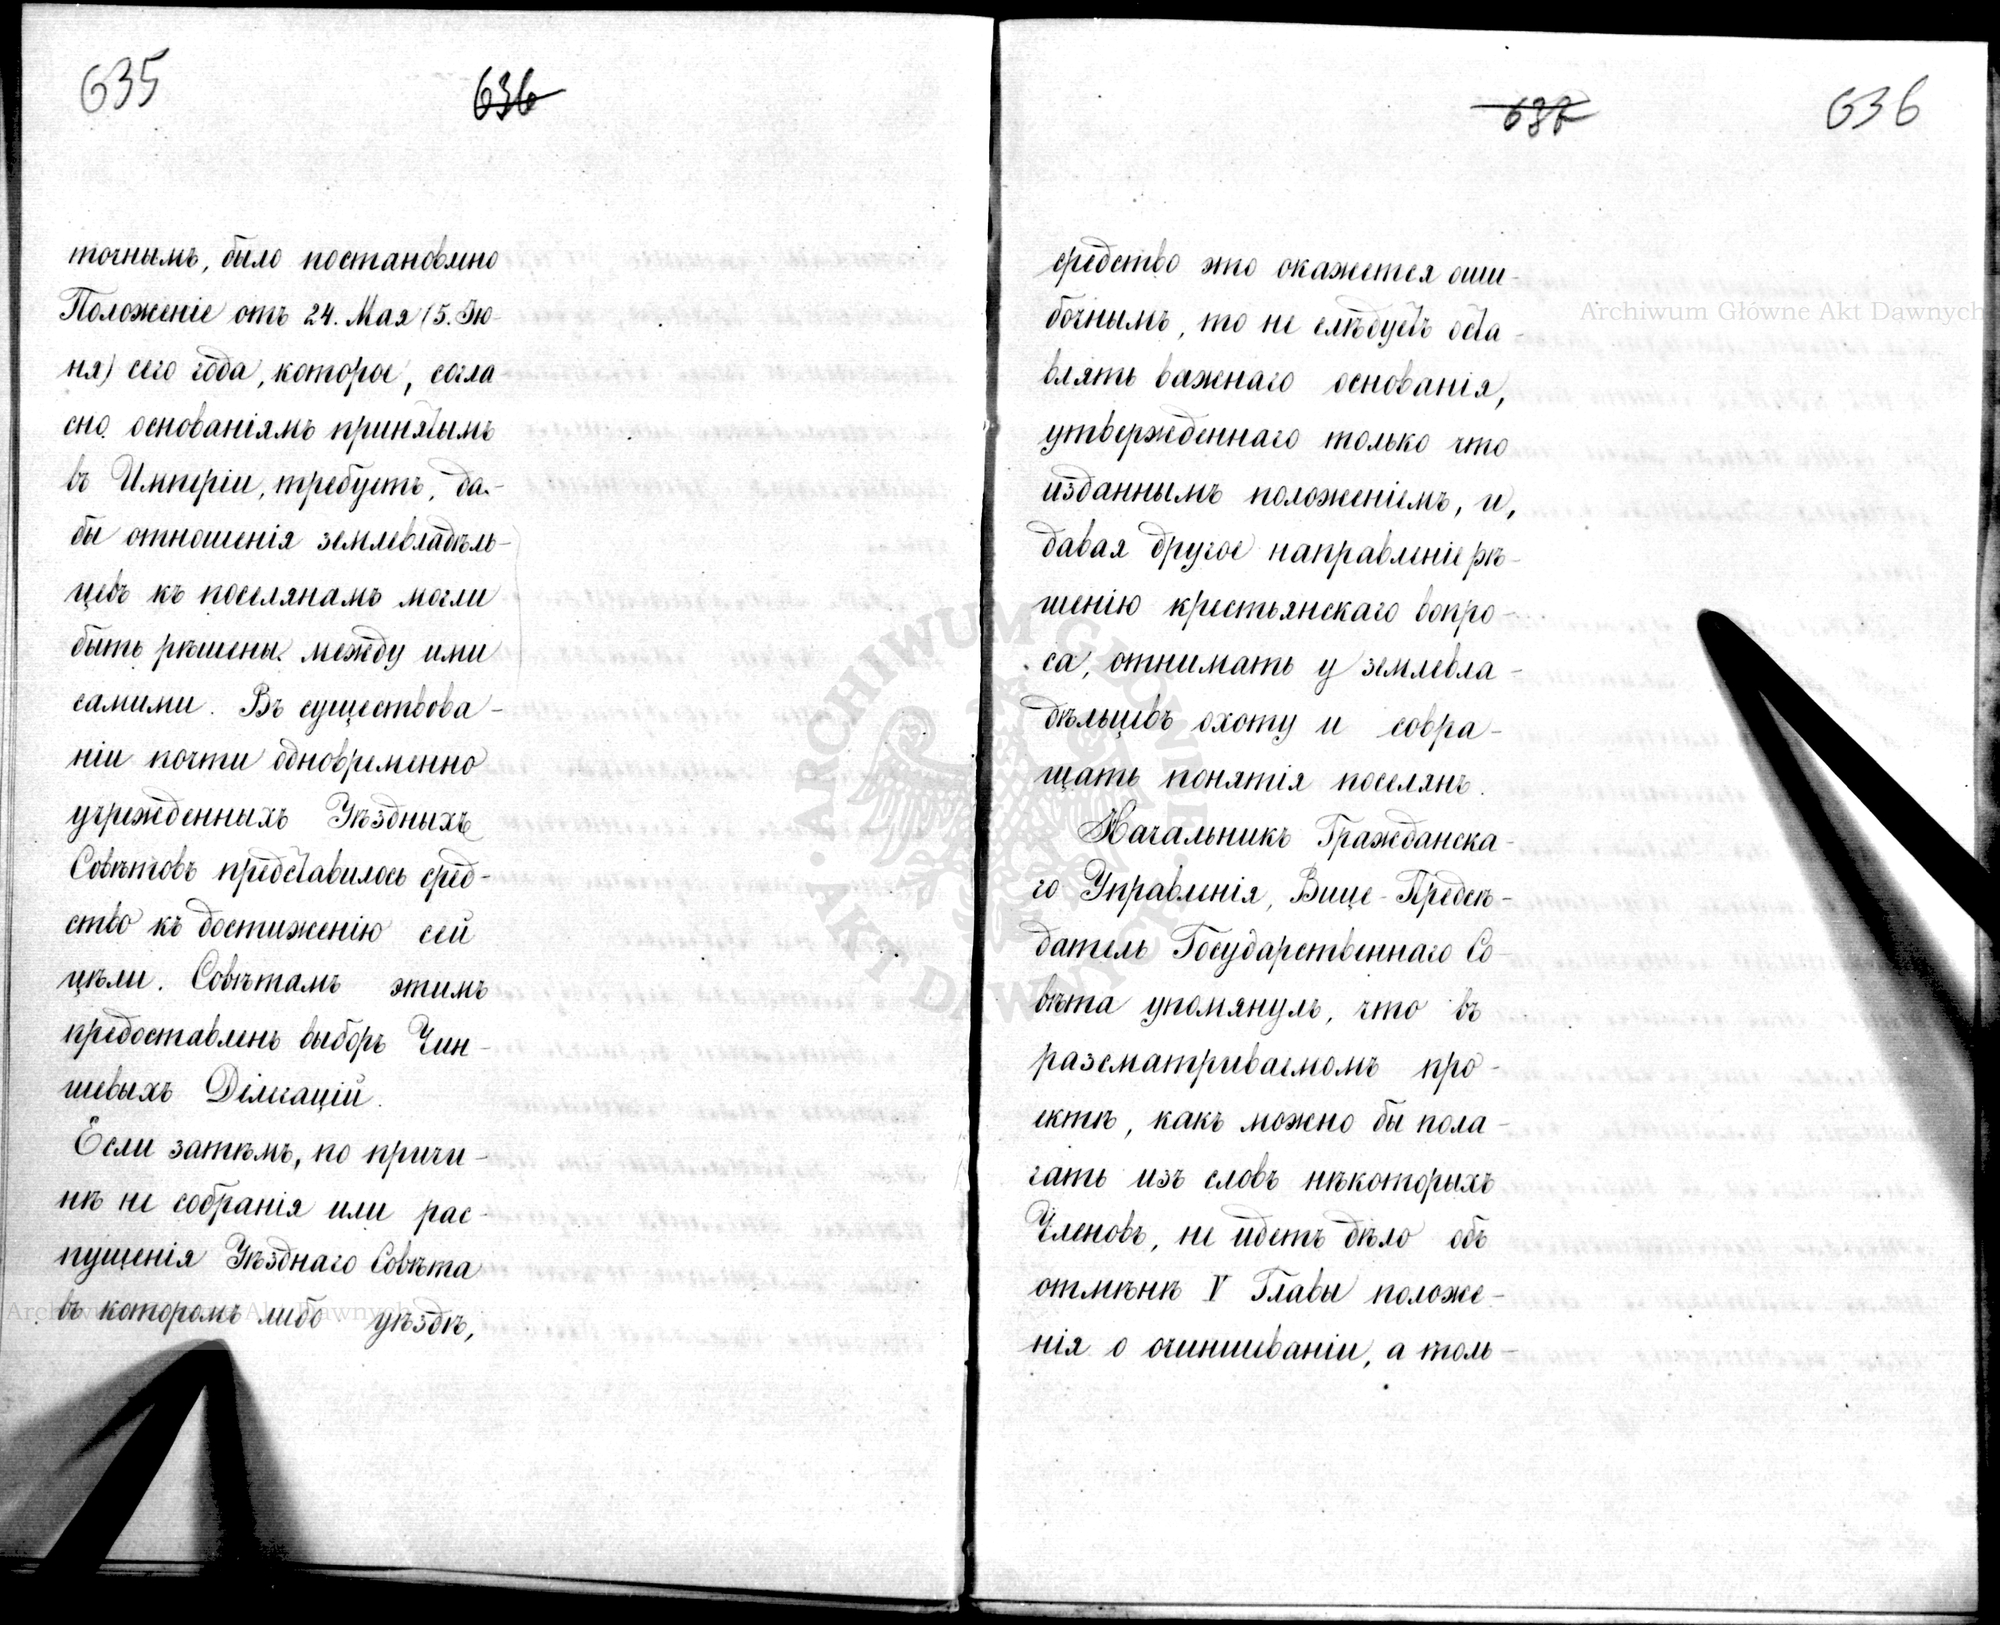 635
636
точнымъ, было постановлено
Положеніе отъ 24. Мая (5. Iю-
ня) сего года, которое, согла
сно основаніямъ принятымъ
въ Имперіи, требуетъ, да-
бы отношенія землевладѣль-
цевъ къ поселянамъ могли
быть рѣшены между ими
самими. Въ существова-
ніи почти одновременно
учрежденныхъ Уѣздныхъ
Совѣтовъ представилось сред-
ство къ достиженію сей
цѣли. Совѣтамъ этимъ
предоставленъ выборъ Чин-
шевыхъ Делегацій.
Если затѣмъ, по причи-
нѣ не собранія или рас-
пущенія Уѣзднаго Совѣта
въ которомъ либо уѣздѣ,
637
636
средство это окажется оши-
бочнымъ, то не слѣдуетъ оста-
влять важнаго основанія,
утвержденнаго только что
изданнымъ положеніемъ, и,
давая другое направленіе рѣ-
шенію крестьянскаго вопро-
са, отнимать у землевла-
дѣльцевъ охоту и совра-
щать понятія поселянъ.
Начальникъ Гражданска-
го Управленія, Вице-Предсѣ-
датель Государственнаго Со-
вѣта упомянулъ, что въ
разсматриваемомъ про-
ектѣ, какъ можно бы пола-
гать изъ словъ нѣкоторыхъ
Членовъ, не идетъ дѣло объ
отмѣнѣ V Главы положе-
нія о очиншеваніи, а толь-
Archiwum Główne Akt Dawnych
Archiwum Główne Akt Dawnych
ARCHIWUM GŁÓWNE AKT DAWNYCH